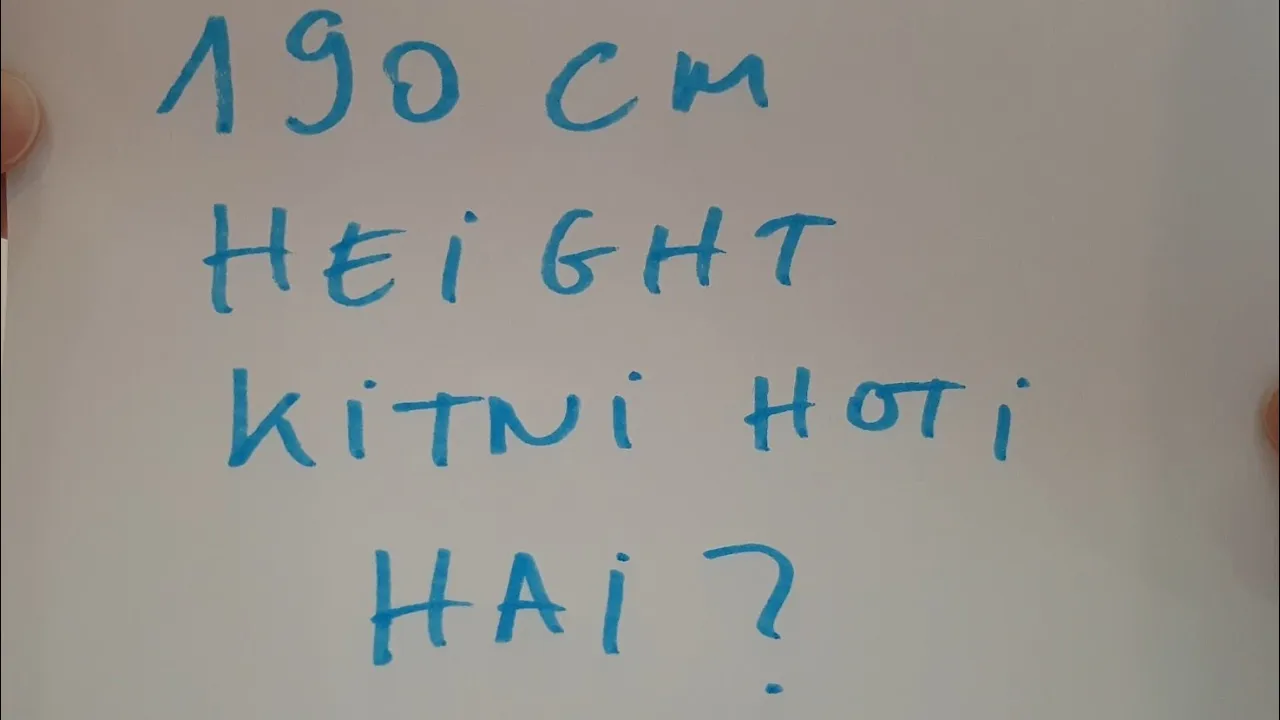 190 CM
HEiGHT
KiTNi HOTi
HAi?